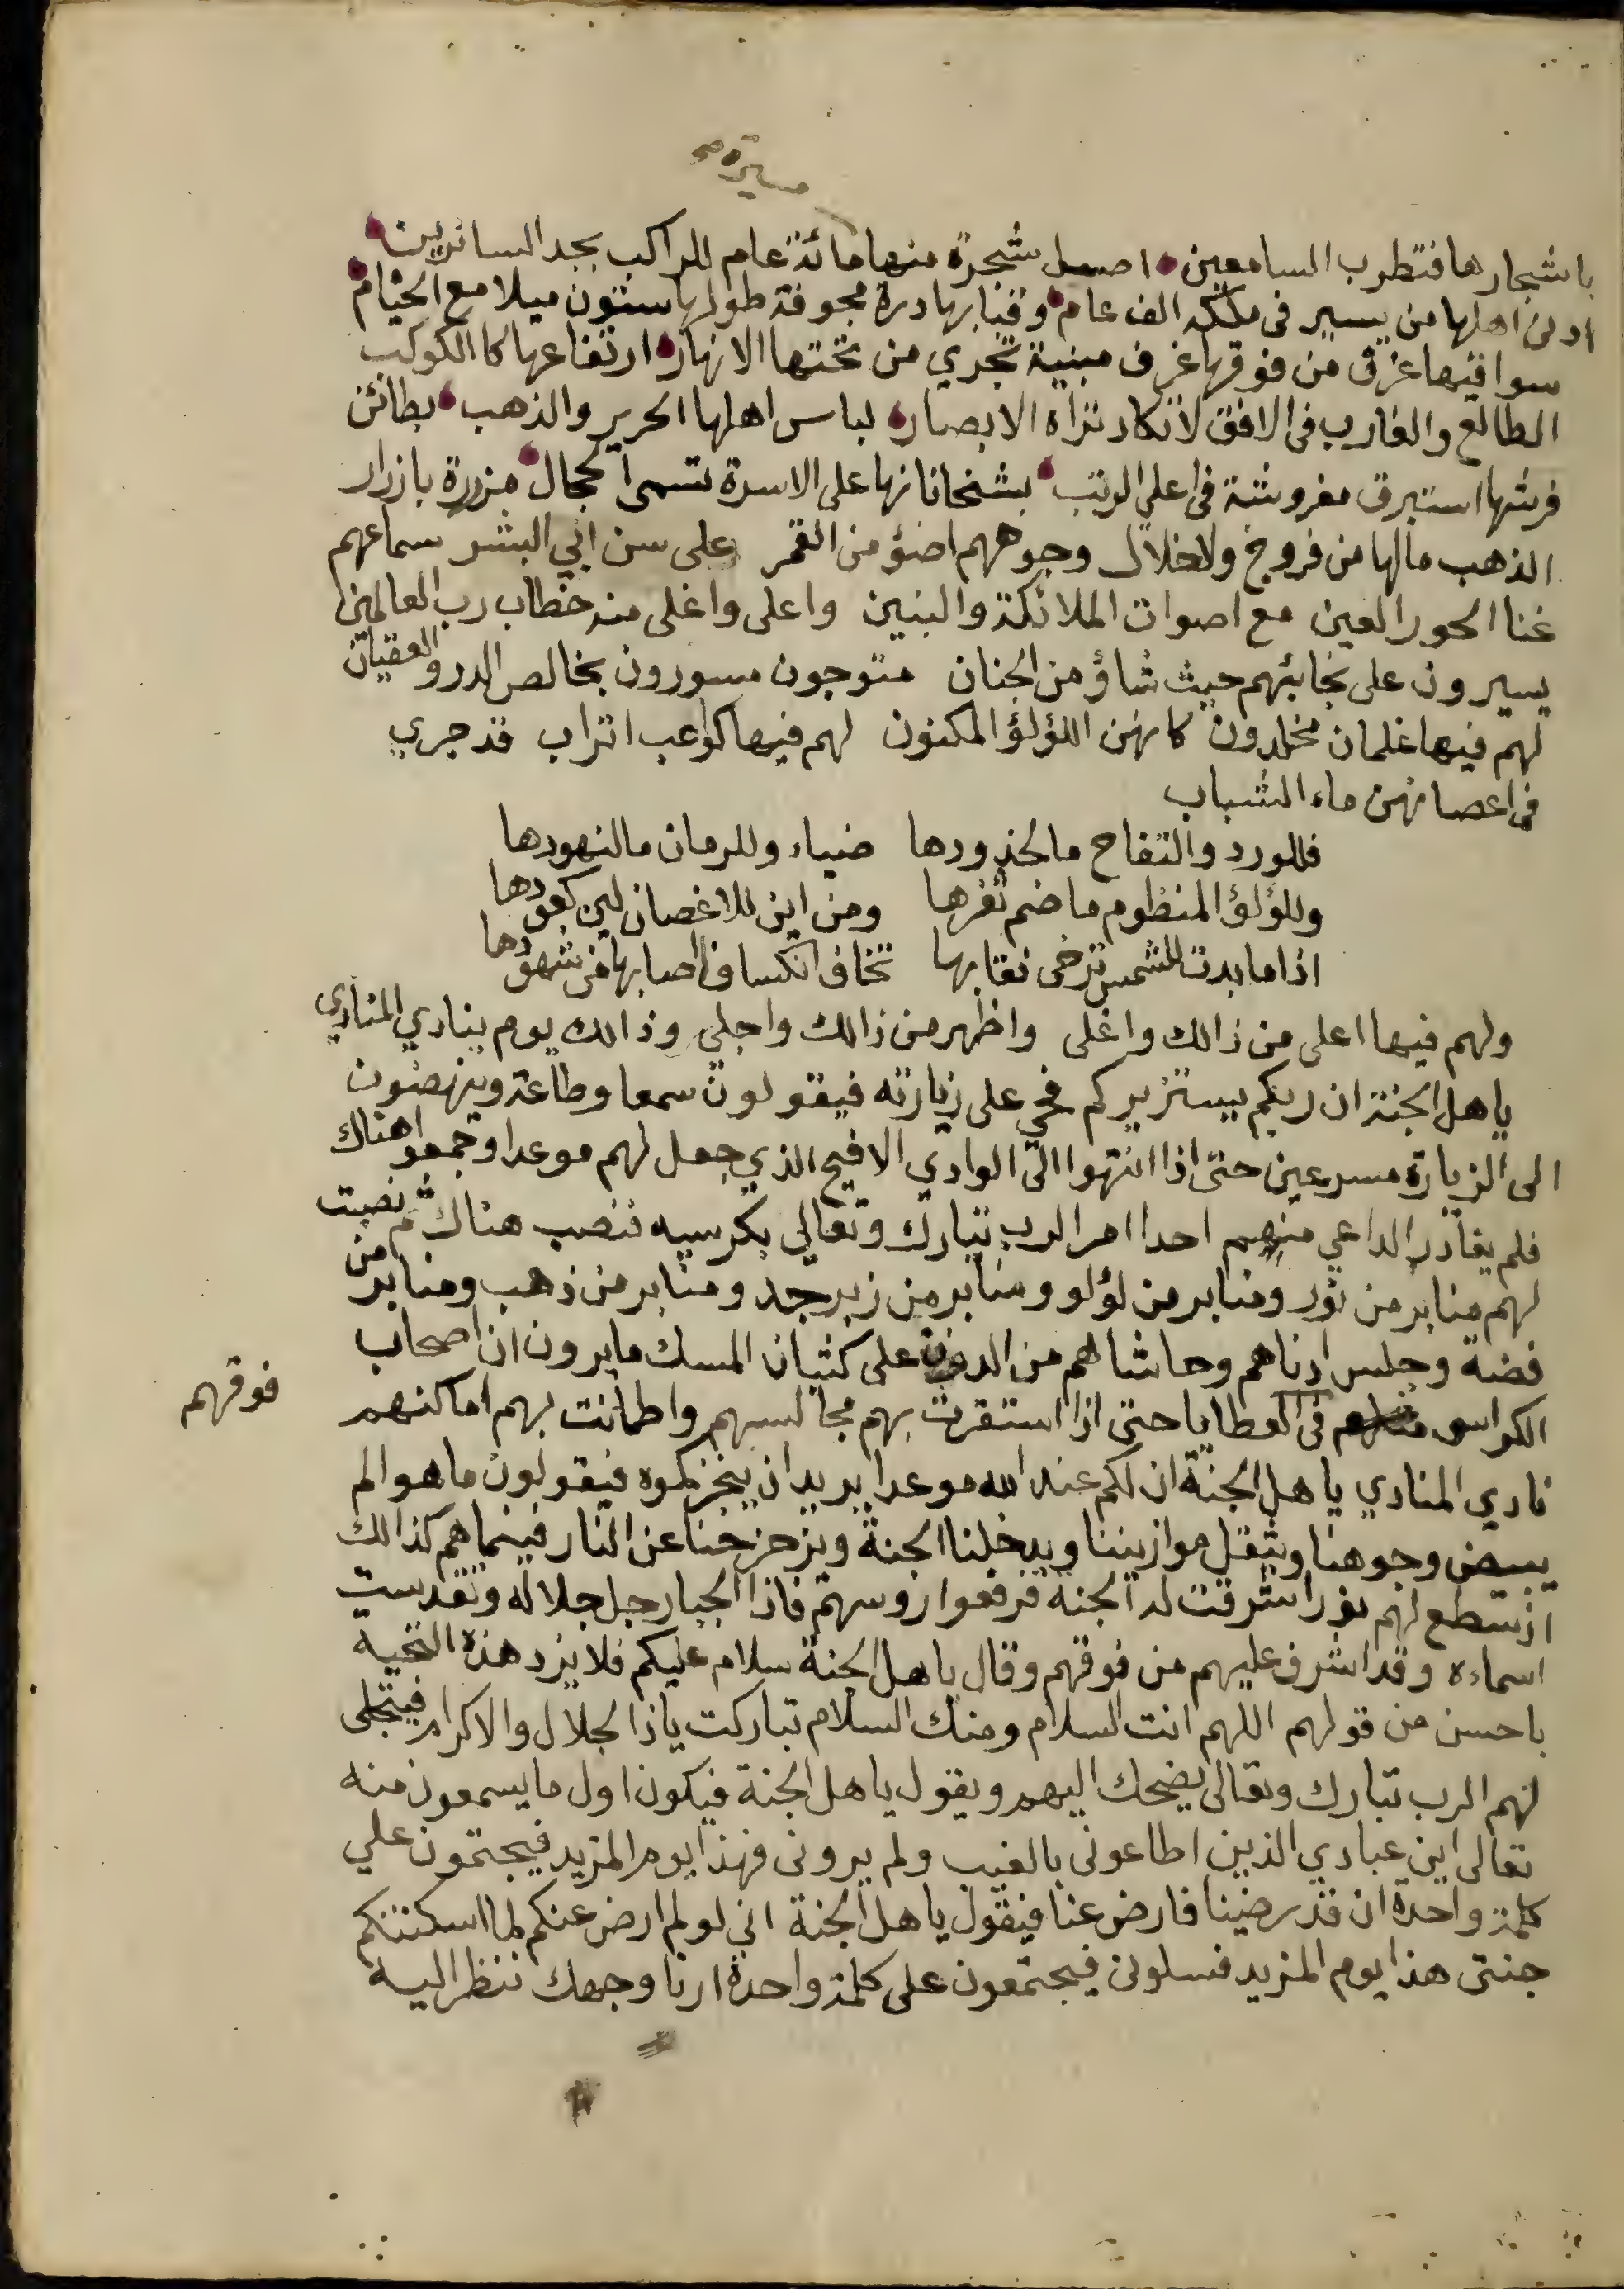 مسيرة صح
باشجارها فتطرب السامعين اصل شجرة منها مائة عام للراكب بجد السائرين
ادنى اهلها من يسير في ملكه الف عام وقبابها درة مجوفة طولها ستون ميلا مع الخيام
سوا فيها غرف من فوقها غرف مبنية تجري من تحتها الانهار ارتفاعها كا الكوكب
الطالع والغارب في الافق لا تكاد تراه الابصار لباس اهلها الحرير والذهب بطائن
فرشها استبرق مفروشة في اعلى الرتب بشخاناتها على الاسرة تسمى الحجال مزررة بازرار
الذهب مالها من فروج ولا خلال وجوههم اضؤ من القمر على سن ابي البشر سماعهم
غنا الحور العين مع اصوات الملائكة والنبين واعلى واغلى منه خطاب رب العالمين
يسيرون على نجائبهم حيث شاؤ من الجنان متوجون مسورون بخالص الدر والعقيان
لهم فيها غلمان مخلدون كانهن اللؤلؤ المكنون لهم فيها كواعب اتراب قد جري
في اعصانهن ماء الشباب
فللورد والتفاح ما لخدودها ضياء وللرمان ما لنهودها
وللؤلؤ المنظوم ما ضم ثغرها ومن اين للاغصان لين كعودها
اذا ما بدت للشمس ترخى نقابها تخاف انكسافا اصابها من شهودها
ولهم فيها اعلى من ذالك واغلى واظهر من ذالك واجلى وذالك يوم ينادي المنادي
ياهل الجنة ان ربكم يستزيركم فحي على زيارته فيقولون سمعا وطاعة وينهضون
الى الزيارة مسرعين حتى اذا انتهوا الى الوادي الافيح الذي جعل لهم موعدا وجمعوا هناك
فلم يغادر الداعي منهم احدا امر الرب تبارك وتعالى بكرسيه فنصب هناك ثم نصبت
لهم منابر من نور ومنابر من لؤلو ومنابر من زبرجد ومنابر من ذهب ومنابر من
فضة وجلس ادناهم وحاشاهم من الدون على كثبان المسك ما يرون ان اصحاب
الكراسي في العطايا حتى اذا استقرت بهم مجالسهم واطمانت بهم اماكنهم
فوقهم
نادي المنادي ياهل الجنة ان لكم عند الله موعدا يريد ان ينجزكموه فيقولون ما هو الم
يبيض وجوهنا ويثقل موازيننا ويدخلنا الجنة ويزحزحنا عن النار فبينما هم كذالك
اذ سطع لهم نور اشرقت له الجنة فرفعوا روسهم فاذا الجبار جل جلاله وتقدست
اسماءه وقد اشرف عليهم من فوقهم وقال ياهل الجنة سلام عليكم فلا يرد هذه التحية
باحسن من قولهم اللهم انت السلام ومنك السلام تباركت ياذا الجلال والاكرام فيتجلى
لهم الرب تبارك وتعالى يضحك اليهم ويقول ياهل الجنة فيكون اول ما يسمعون منه
تعالى اين عبادي الذين اطاعوني بالغيب ولم يروني فهذا يوم المزيد فيجتمون علي
كلمة واحدة ان قد رضينا فارض عنا فيقول ياهل الجنة اني لو لم ارض عنكم لما اسكنتكم
جنتي هذا يوم المزيد فسلوني فيجتمعون على كلمة واحدة ارنا وجهك ننظر اليه